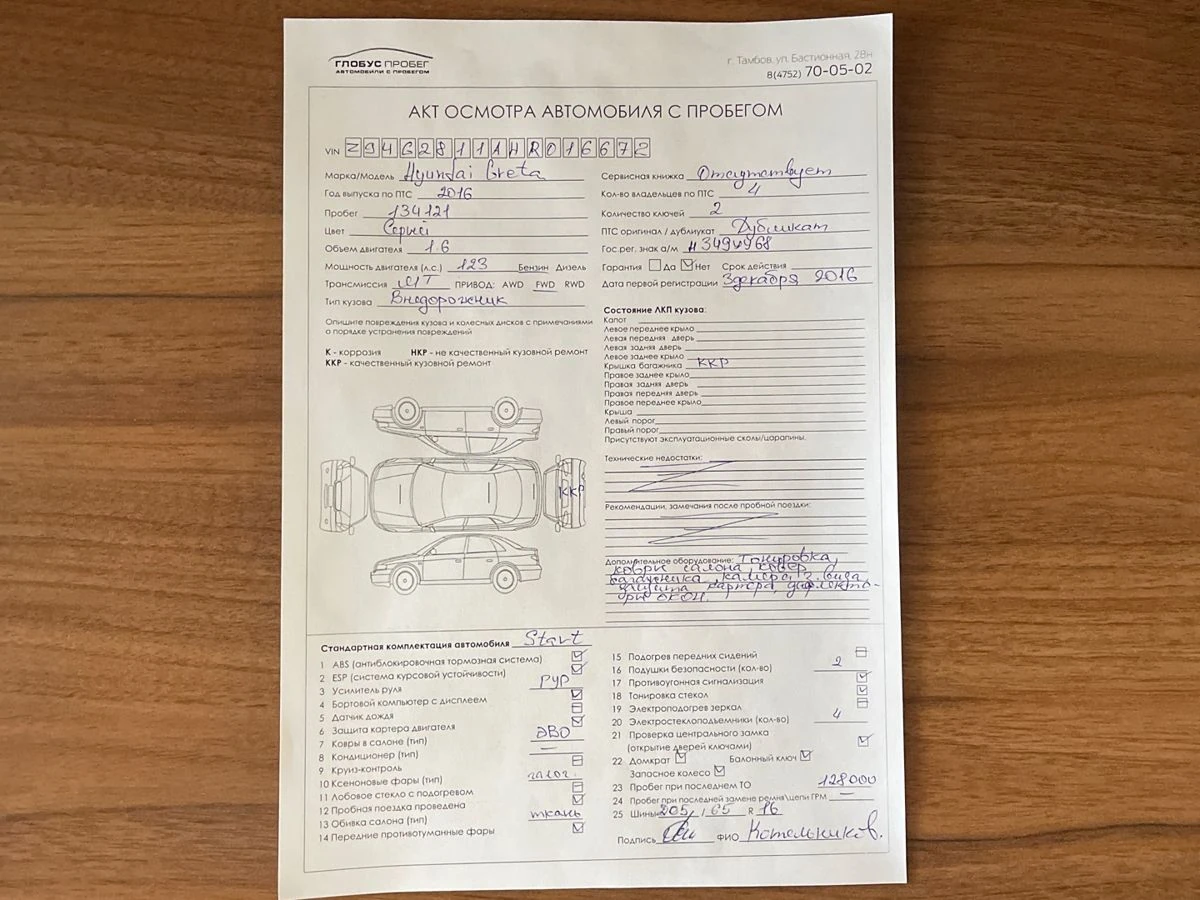 ГЛОБУС ПРОБЕГ
АВТОМОБИЛИ С ПРОБЕГОМ
г. Тамбов, ул. Бастионная, 28н
8(4752) 70-05-02
АКТ ОСМОТРА АВТОМОБИЛЯ С ПРОБЕГОМ
VIN Z94G28111HR016672
Марка/Модель Hyundai Creta
Год выпуска по ПТС 2016
Пробег 134121
Цвет Серый
Объем двигателя 1.6
Мощность двигателя (л.с.) 123 Бензин Дизель
Трансмиссия МТ ПРИВОД: AWD FWD RWD
Тип кузова Внедорожник
Опишите повреждения кузова и колесных дисков с примечаниями
о порядке устранения повреждений
К - коррозия НКР - не качественный кузовной ремонт
ККР - качественный кузовной ремонт
ККР
Сервисная книжка Отсутствует
Кол-во владельцев по ПТС 4
Количество ключей 2
ПТС оригинал / дубликат Дубликат
Гос.рег. знак а/м
Гарантия Да Нет Срок действия
Дата первой регистрации 3 декабря 2016
Состояние ЛКП кузова:
Капот
Левое переднее крыло
Левая передняя дверь
Левая задняя дверь
Левое заднее крыло
Крышка багажника ККР
Правое заднее крыло
Правая задняя дверь
Правая передняя дверь
Правое переднее крыло
Крыша
Левый порог
Правый порог
Присутствуют эксплуатационные сколы/царапины.
Технические недостатки:
Рекомендации, замечания после пробной поездки:
Дополнительное оборудование: Тонировка,
коври салона, ковер
багажника, камера з. вида,
защита картера, дефлекто-
ры окон.
Стандартная комплектация автомобиля Start
1 ABS (антиблокировочная тормозная система)
2 ESP (система курсовой устойчивости)
3 Усилитель руля РУР
4 Бортовой компьютер с дисплеем
5 Датчик дождя
6 Защита картера двигателя
7 Ковры в салоне (тип) ЭВО
8 Кондиционер (тип) —
9 Круиз-контроль
10 Ксеноновые фары (тип) галог.
11 Лобовое стекло с подогревом
12 Пробная поездка проведена
13 Обивка салона (тип) ткань
14 Передние противотуманные фары
15 Подогрев передних сидений
16 Подушки безопасности (кол-во) 2
17 Противоугонная сигнализация
18 Тонировка стекол
19 Электроподогрев зеркал
20 Электростеклоподъемники (кол-во) 4
21 Проверка центрального замка
(открытие дверей ключами)
22 Домкрат Балонный ключ
Запасное колесо
23 Пробег при последнем ТО 128000
24 Пробег при последней замене ремня\цепи ГРМ —
25 Шины 205 / 65 R 16
Подпись ФИО Котельников.